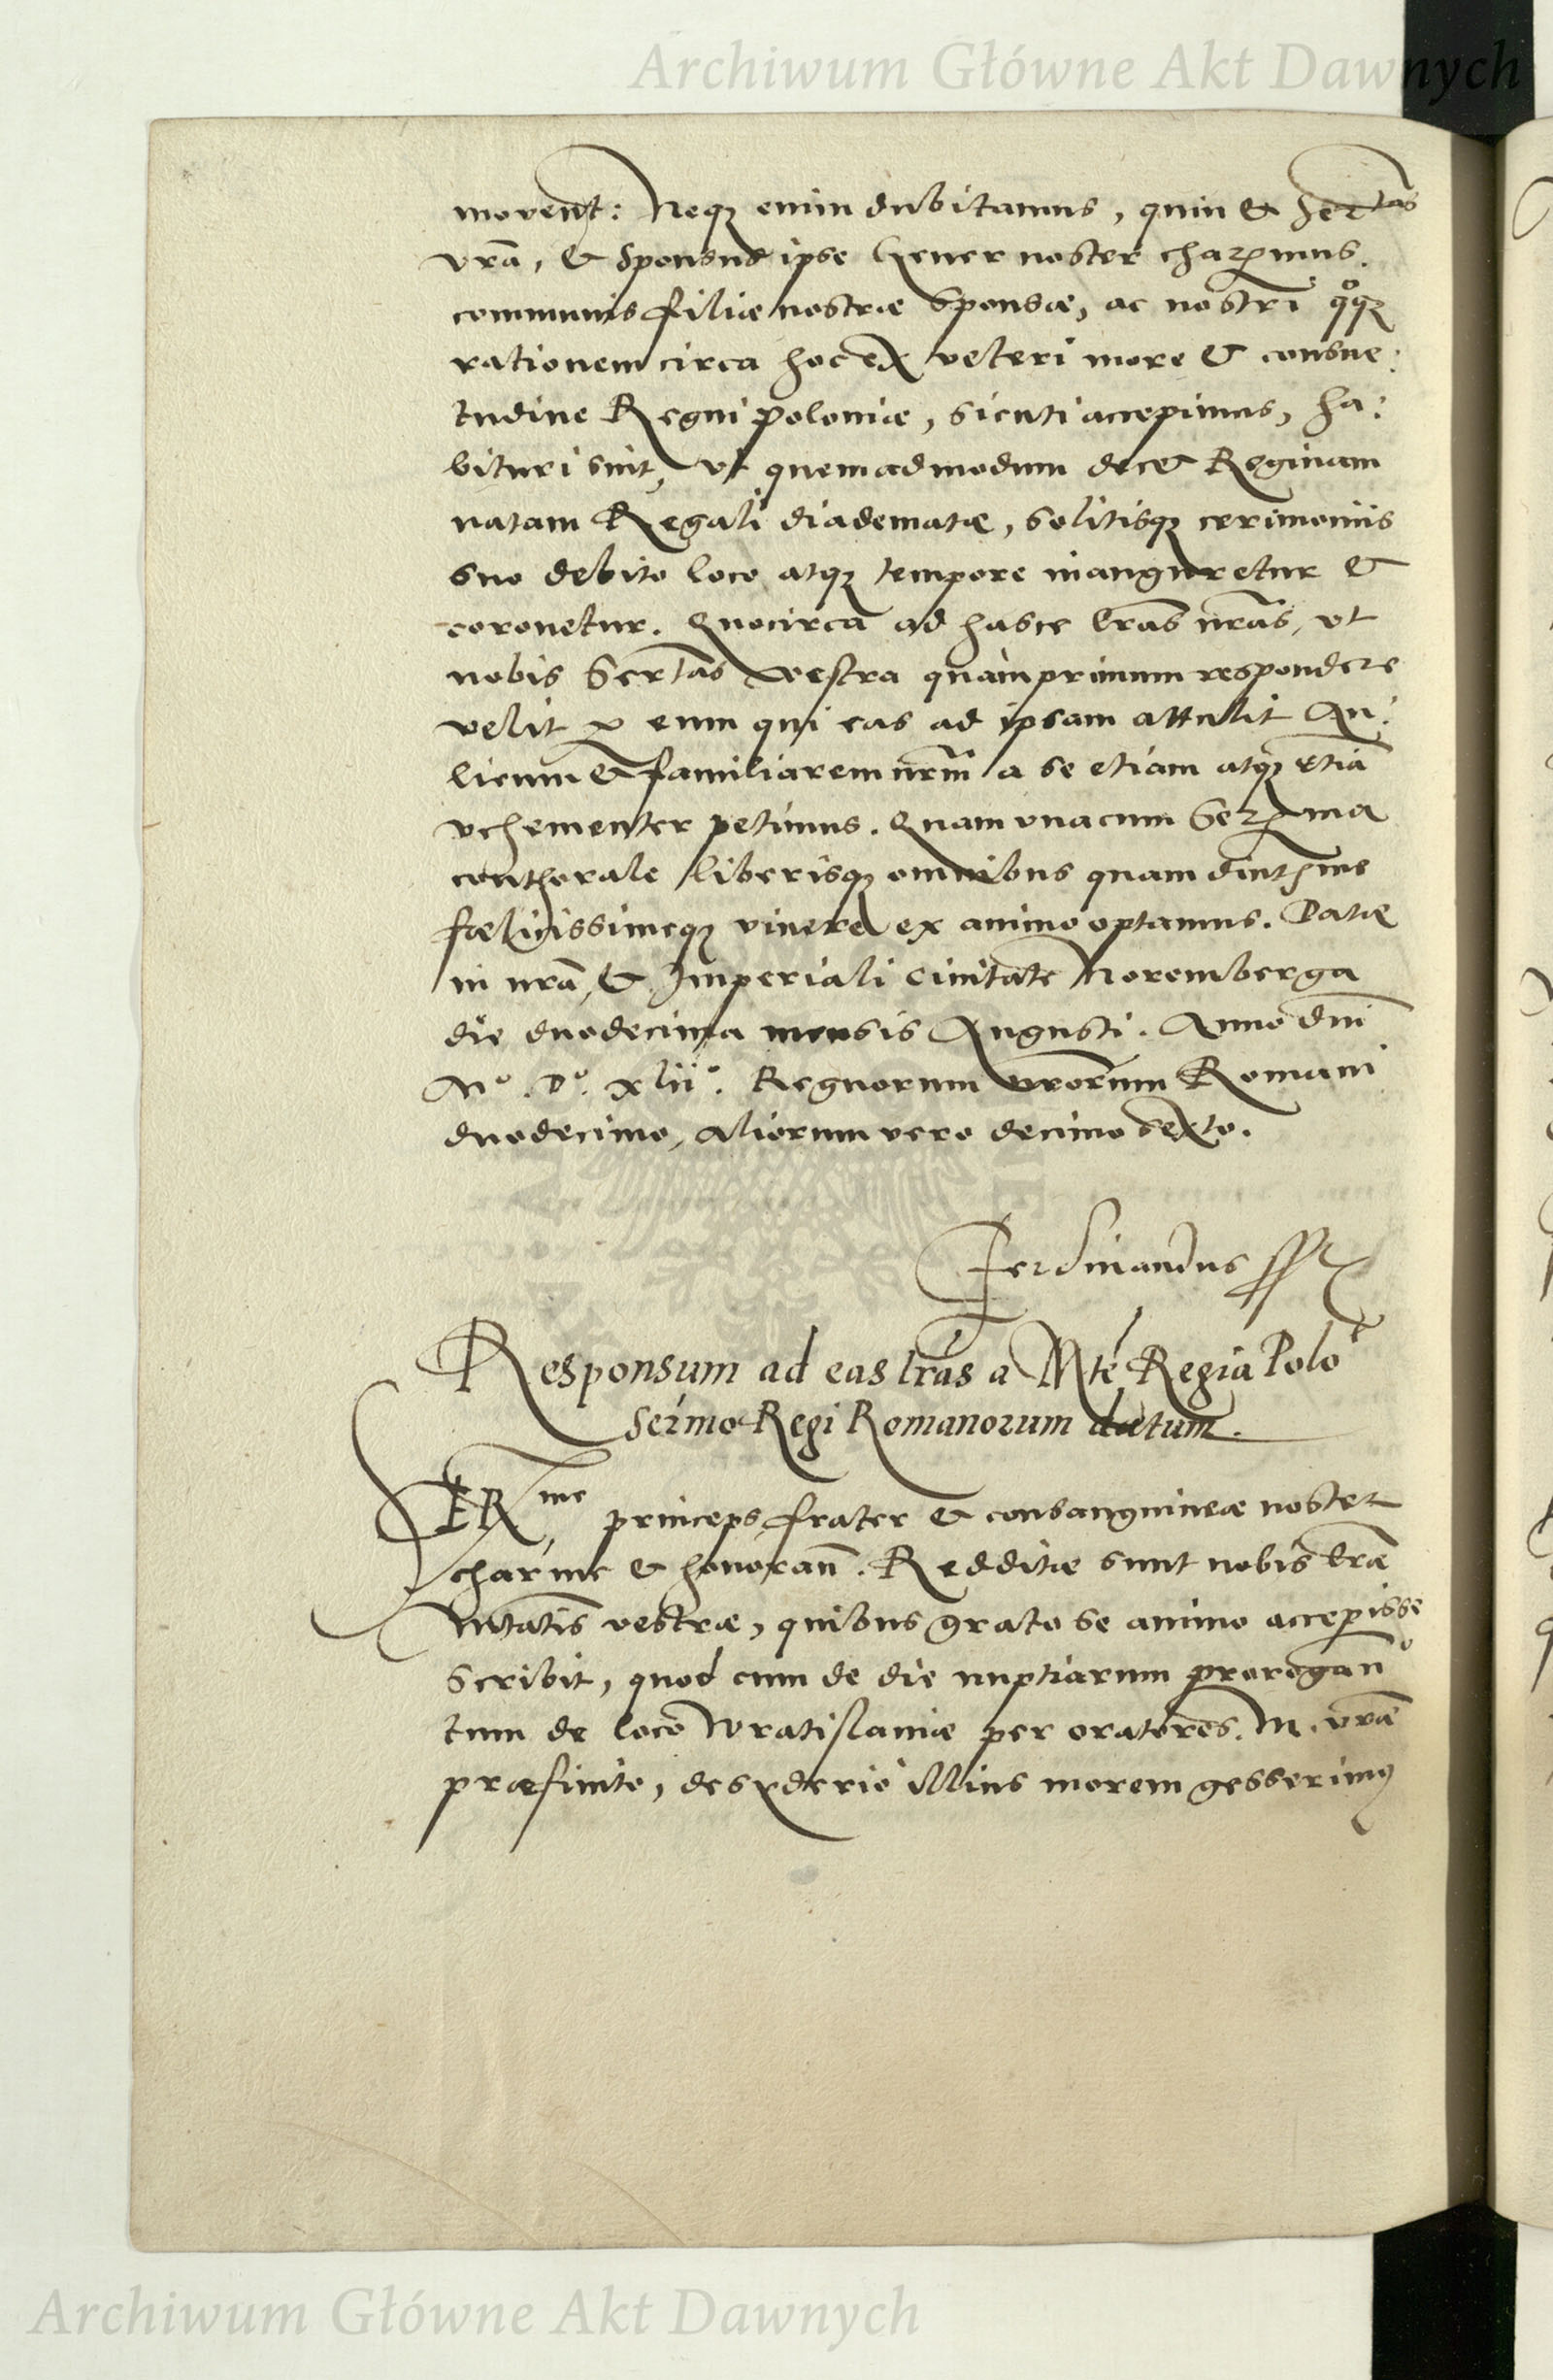 Archiwum Główne Akt Dawnych
movent: Neq; enim dubitamus, quin & Sertas
vrã, & Sponsus ipse Gener noster charmus.
communis filiæ nostræ Sponsæ, ac nostri qoq;
rationem circa hoc ex veteri more & consue:
tudine Regni Poloniæ, sicuti accepimus, ha:
bituri sint, vt quemadmodum decet Reginam
natam Regali diademate, solitisq; cerimoniis
suo debito loco atq; tempore inauguretur &
coronetur. Quocirca ad hasce lrãs nrãs, vt
nobis Sertas vestra quàmprimum respondere
velit p eum qui eas ad ipsam attulit Au:
licum & familiarem nrm̃ a se etiam atq; etiã
vehementer petimus. Quam vnacum Serma
conthorale liberisq; omnibus quam diutsme
fœlicissimeq; viuere ex animo optamus. Datæ
in nrã, & Imperiali Ciuitate Noremberga
die duodecima mensis Augusti. Anno dni
Mo. Do. xlii.o Regnorum nrorum Romani
duodecimo, Aliorum vero decimo sexto.
Ferdinandus
Responsum ad eas lrãs a Mte Regia Polo
Sermo Regi Romanorum datum.
SERme princeps frater & consanguineæ noster
charme & honorañ. Redditæ sunt nobis lræ
Mtatis vestræ, quibus grato se animo accepisse
Scribit, quod cum de die nuptiarum prorogan
tum de loco Wratislauiæ per oratores. M. vræ
præfinito, desyderio illius morem gesserim9
Archiwum Główne Akt Dawnych